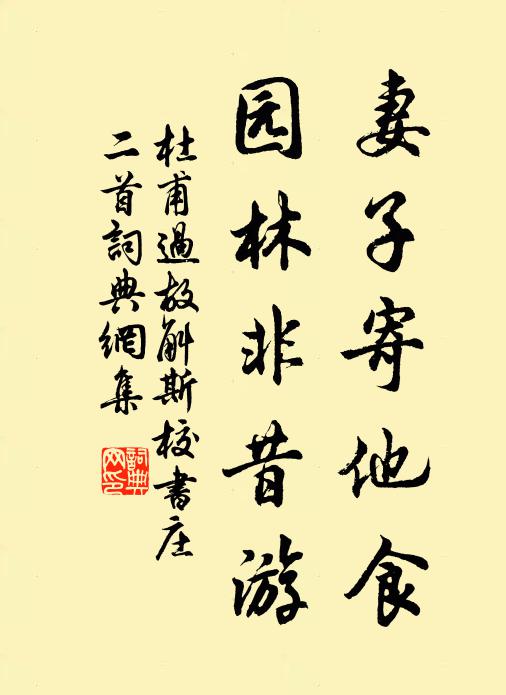 妻子寄他食
园林非昔游
杜甫過故斛斯校書庄
二首詞典網集
詞典网印